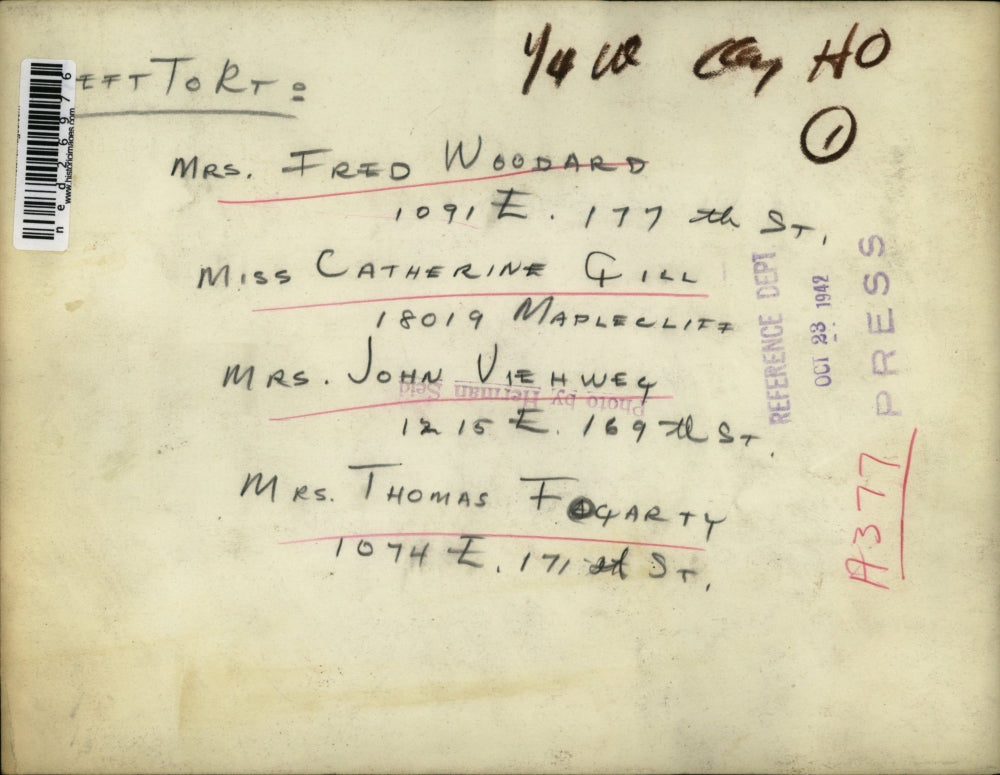 1/4 HO
1
EFT TO RT:
MRS. FRED WOODARD
1091 E. 177 th ST.
MISS CATHERINE GILL
18019 MAPLECLIFF
MRS. JOHN VIEHWEG
1215 E. 169 th ST.
MRS. THOMAS FOGARTY
1074 E. 171 st ST.
Photo by Herman Seid
REFERENCE DEPT
OCT 23 1942
PRESS
A377
ned26976
www.historicimages.com